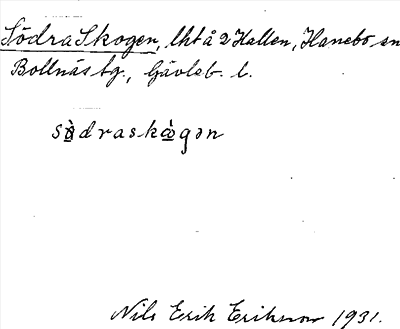 Södra Skogen, lht å 2 Hallen, Hanebo sn
Bollnäs tg., Gävleb. l.
sö̀draskò̱gən
Nils Erik Eriksson 1931.